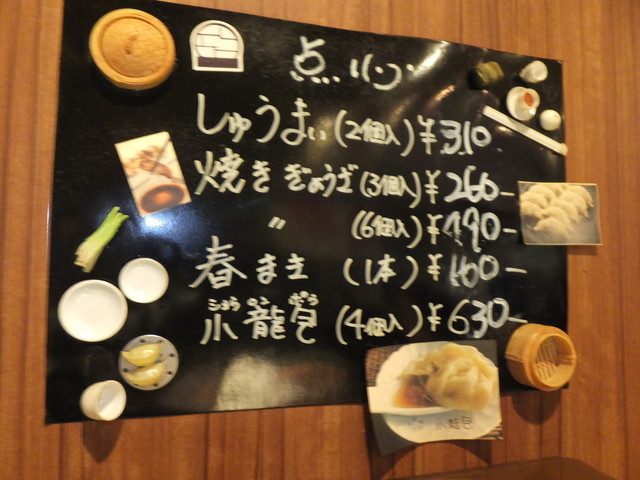 点心
しゅうまい(2個入)¥310
焼きぎょうざ(3個入)¥260-
〃 (6個入)¥490-
春まき (1本)¥160-
ショウ ロン ポウ
小龍包 (4個入)¥630-
小龍包